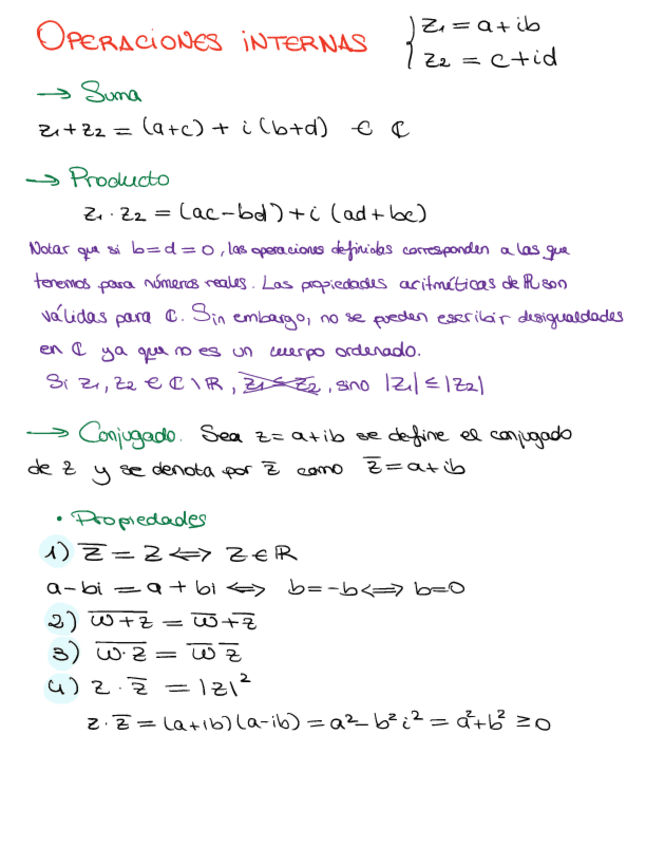 OPERACIONES INTERNAS
{ z₁ = a + ib
z₂ = c + id
→ Suma
z₁ + z₂ = (a+c) + i (b+d) ∈ ℂ
→ Producto
z₁ · z₂ = (ac - bd) + i (ad + bc)
Notar que si b = d = 0, las operaciones definidas corresponden a las que
tenemos para números reales. Las propiedades aritméticas de ℝ son
válidas para ℂ. Sin embargo, no se pueden escribir desigualdades
en ℂ ya que no es un cuerpo ordenado.
Si z₁, z₂ ∈ ℂ \ ℝ, z₁ ≤ z₂, sino |z₁| ≤ |z₂|
→ Conjugado. Sea z = a + ib se define el conjugado
de z y se denota por z̄ como z̄ = a + ib
• Propiedades
1) z̄ = z ⟺ z ∈ ℝ
a - bi = a + bi ⟺ b = -b ⟺ b = 0
2) \overline{w + z} = w̄ + z̄
3) \overline{w · z} = w̄ z̄
4) z · z̄ = |z|²
z · z̄ = (a + ib)(a - ib) = a² - b² i² = a² + b² ≥ 0